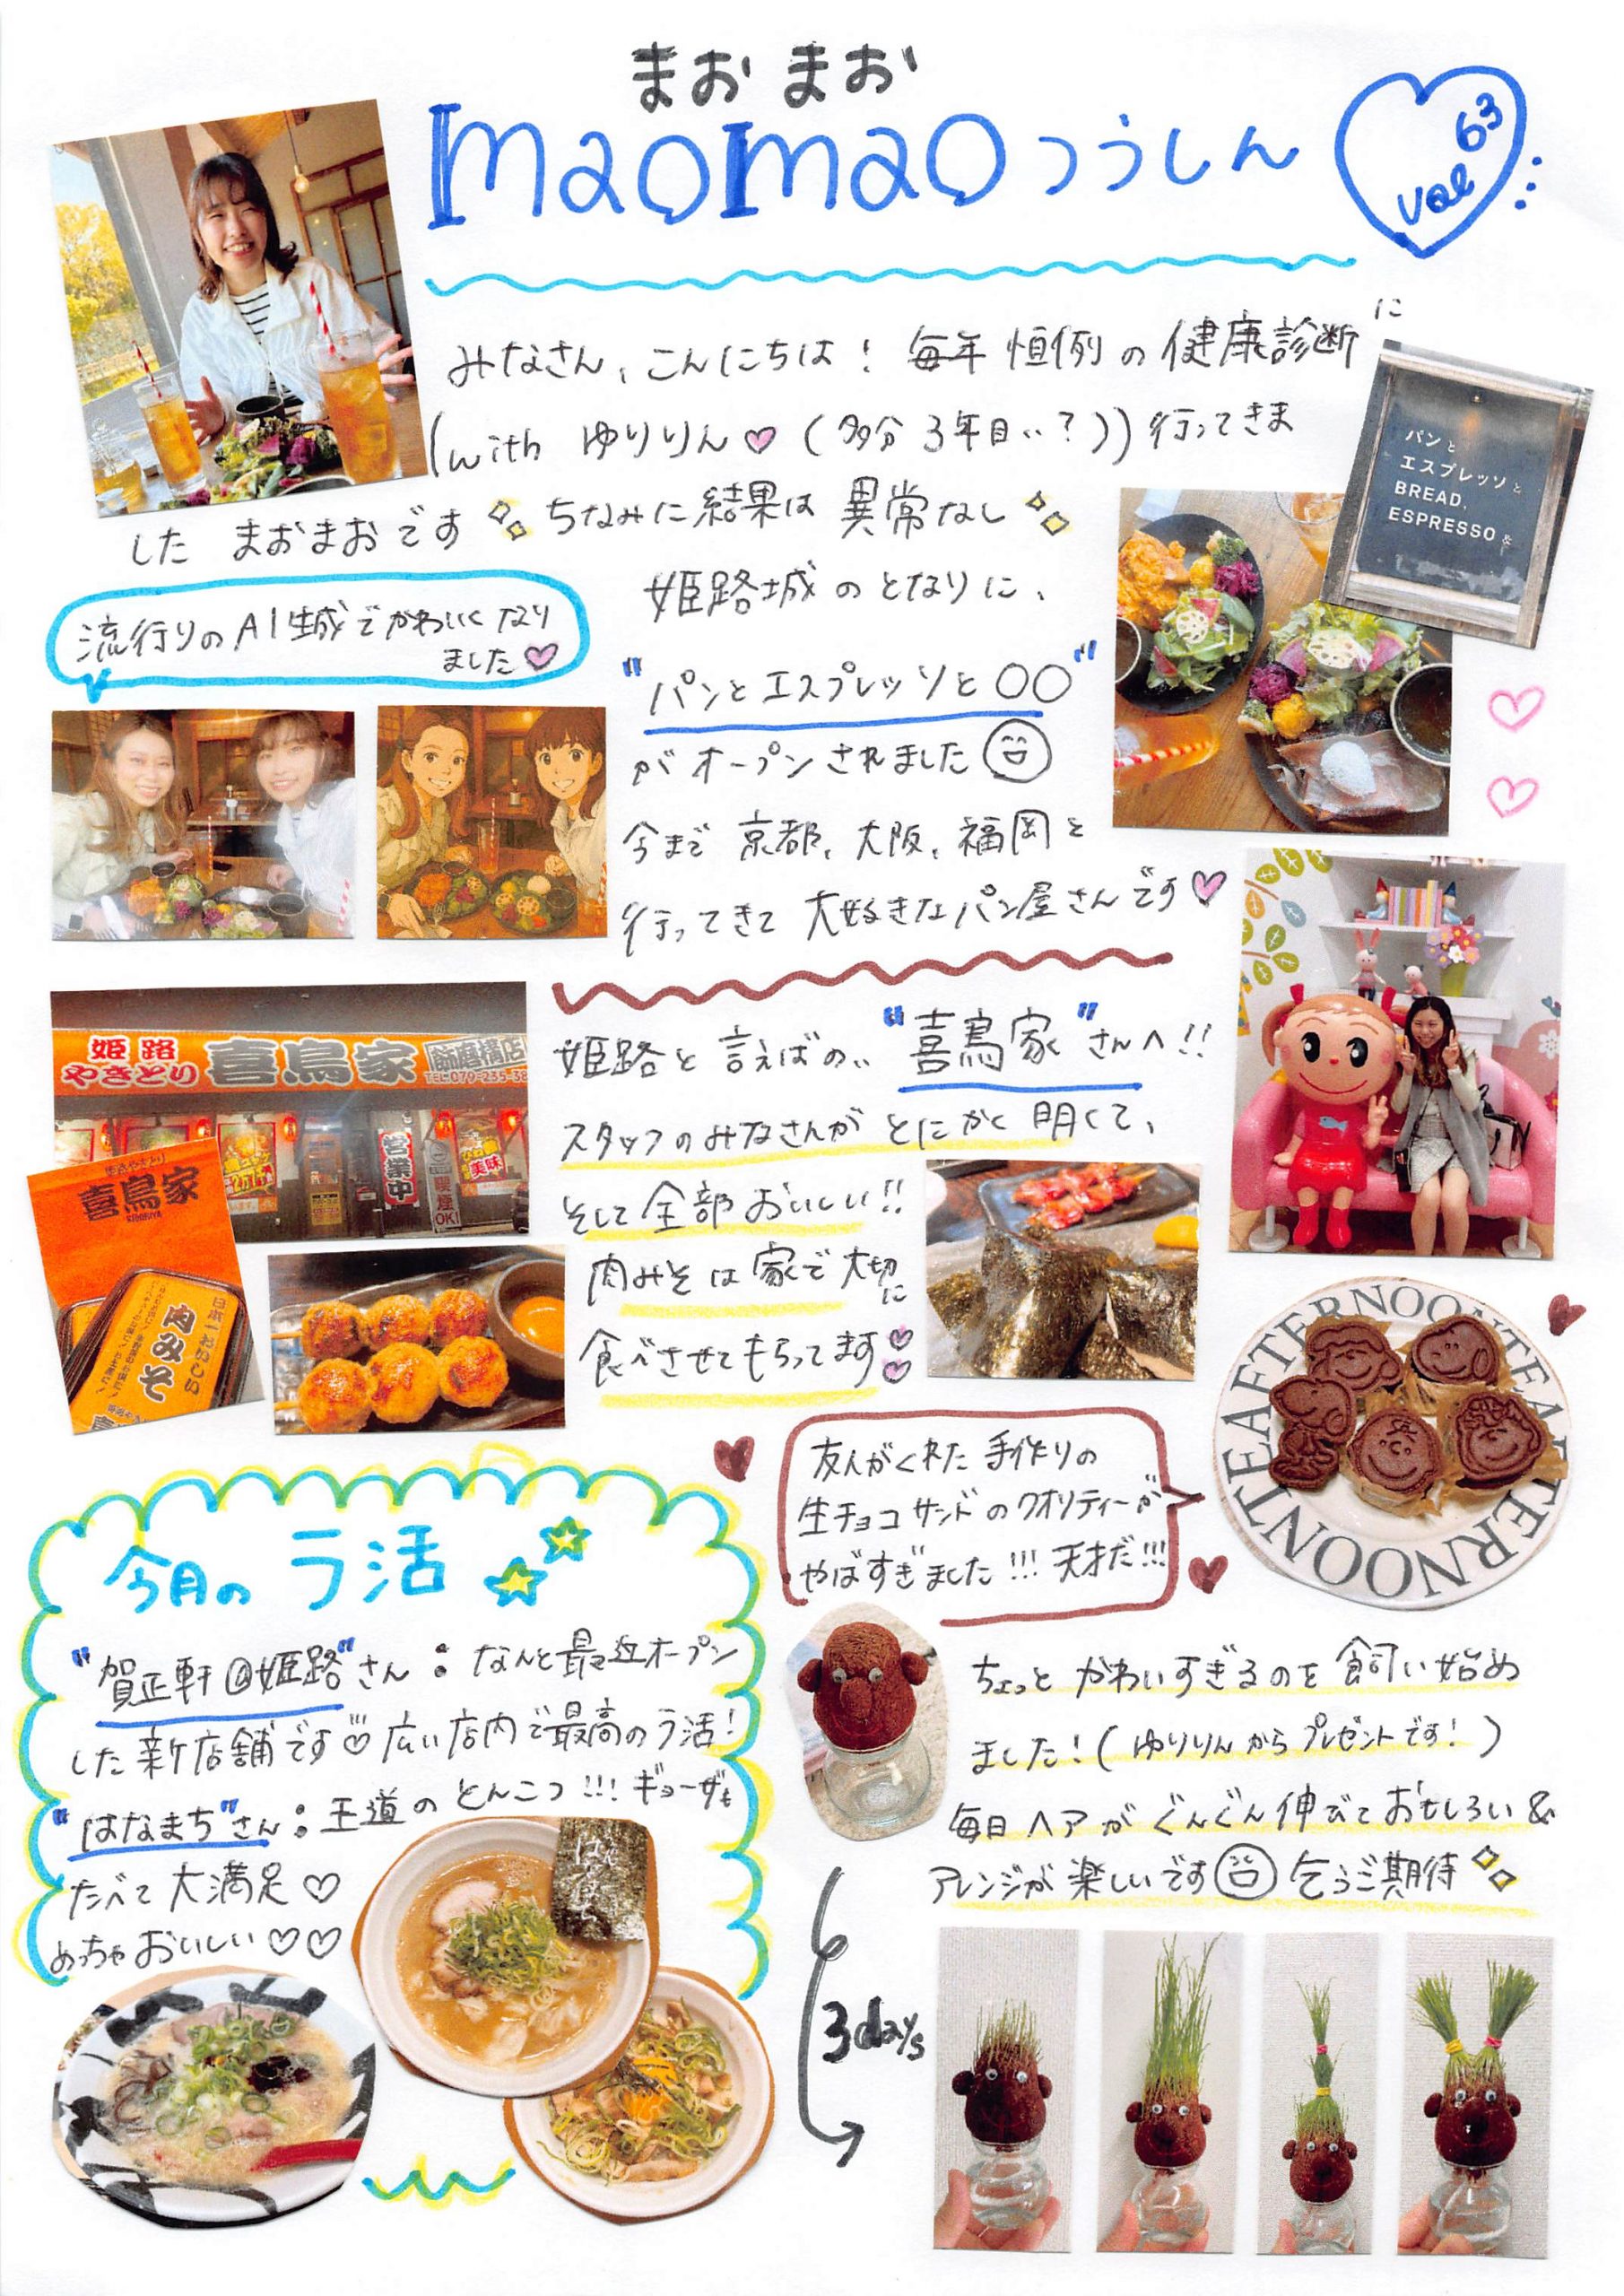 まおまお
maomaoつうしん
vol 63
みなさん、こんにちは！毎年恒例の健康診断に
(with ゆりりん♡(多分3年目‥？))行ってきま
した まおまおです ちなみに結果は異常なし
パンと
エスプレッソと
BREAD,
ESPRESSO &
流行りのAI生成でかわいくなり
ました♡
姫路城のとなりに、
"パンとエスプレッソと○○"
がオープンされました
今まで京都、大阪、福岡と
行ってきて大好きなパン屋さんです♡
姫路
やきとり
喜鳥家
飾磨横店
TEL079-235-38
営業中
喫煙OK!
美味
姫路と言えばの‥"喜鳥家"さんへ!!
スタッフのみなさんがとにかく明くて、
そして全部おいしい!!
肉みそは家で大切に
食べさせてもらってます♡♡
喜鳥家
肉みそ
AFTERNOONTEA
AFTERNOONTEA
友人がくれた手作りの
生チョコサンドのクオリティーが
やばすぎました!!!天才だ!!!
今月のラ活
"賀正軒@姫路"さん：なんと最近オープン
した新店舗です♡広い店内で最高のラ活！
"はなまち"さん：王道のとんこつ!!!ギョーザも
たべて大満足♡
めっちゃおいしい♡♡
ちょっとかわいすぎるのを飼い始め
ました！(ゆりりんからプレゼントです！)
毎日ヘアがぐんぐん伸びておもしろい&
アレンジが楽しいです 乞うご期待
3days